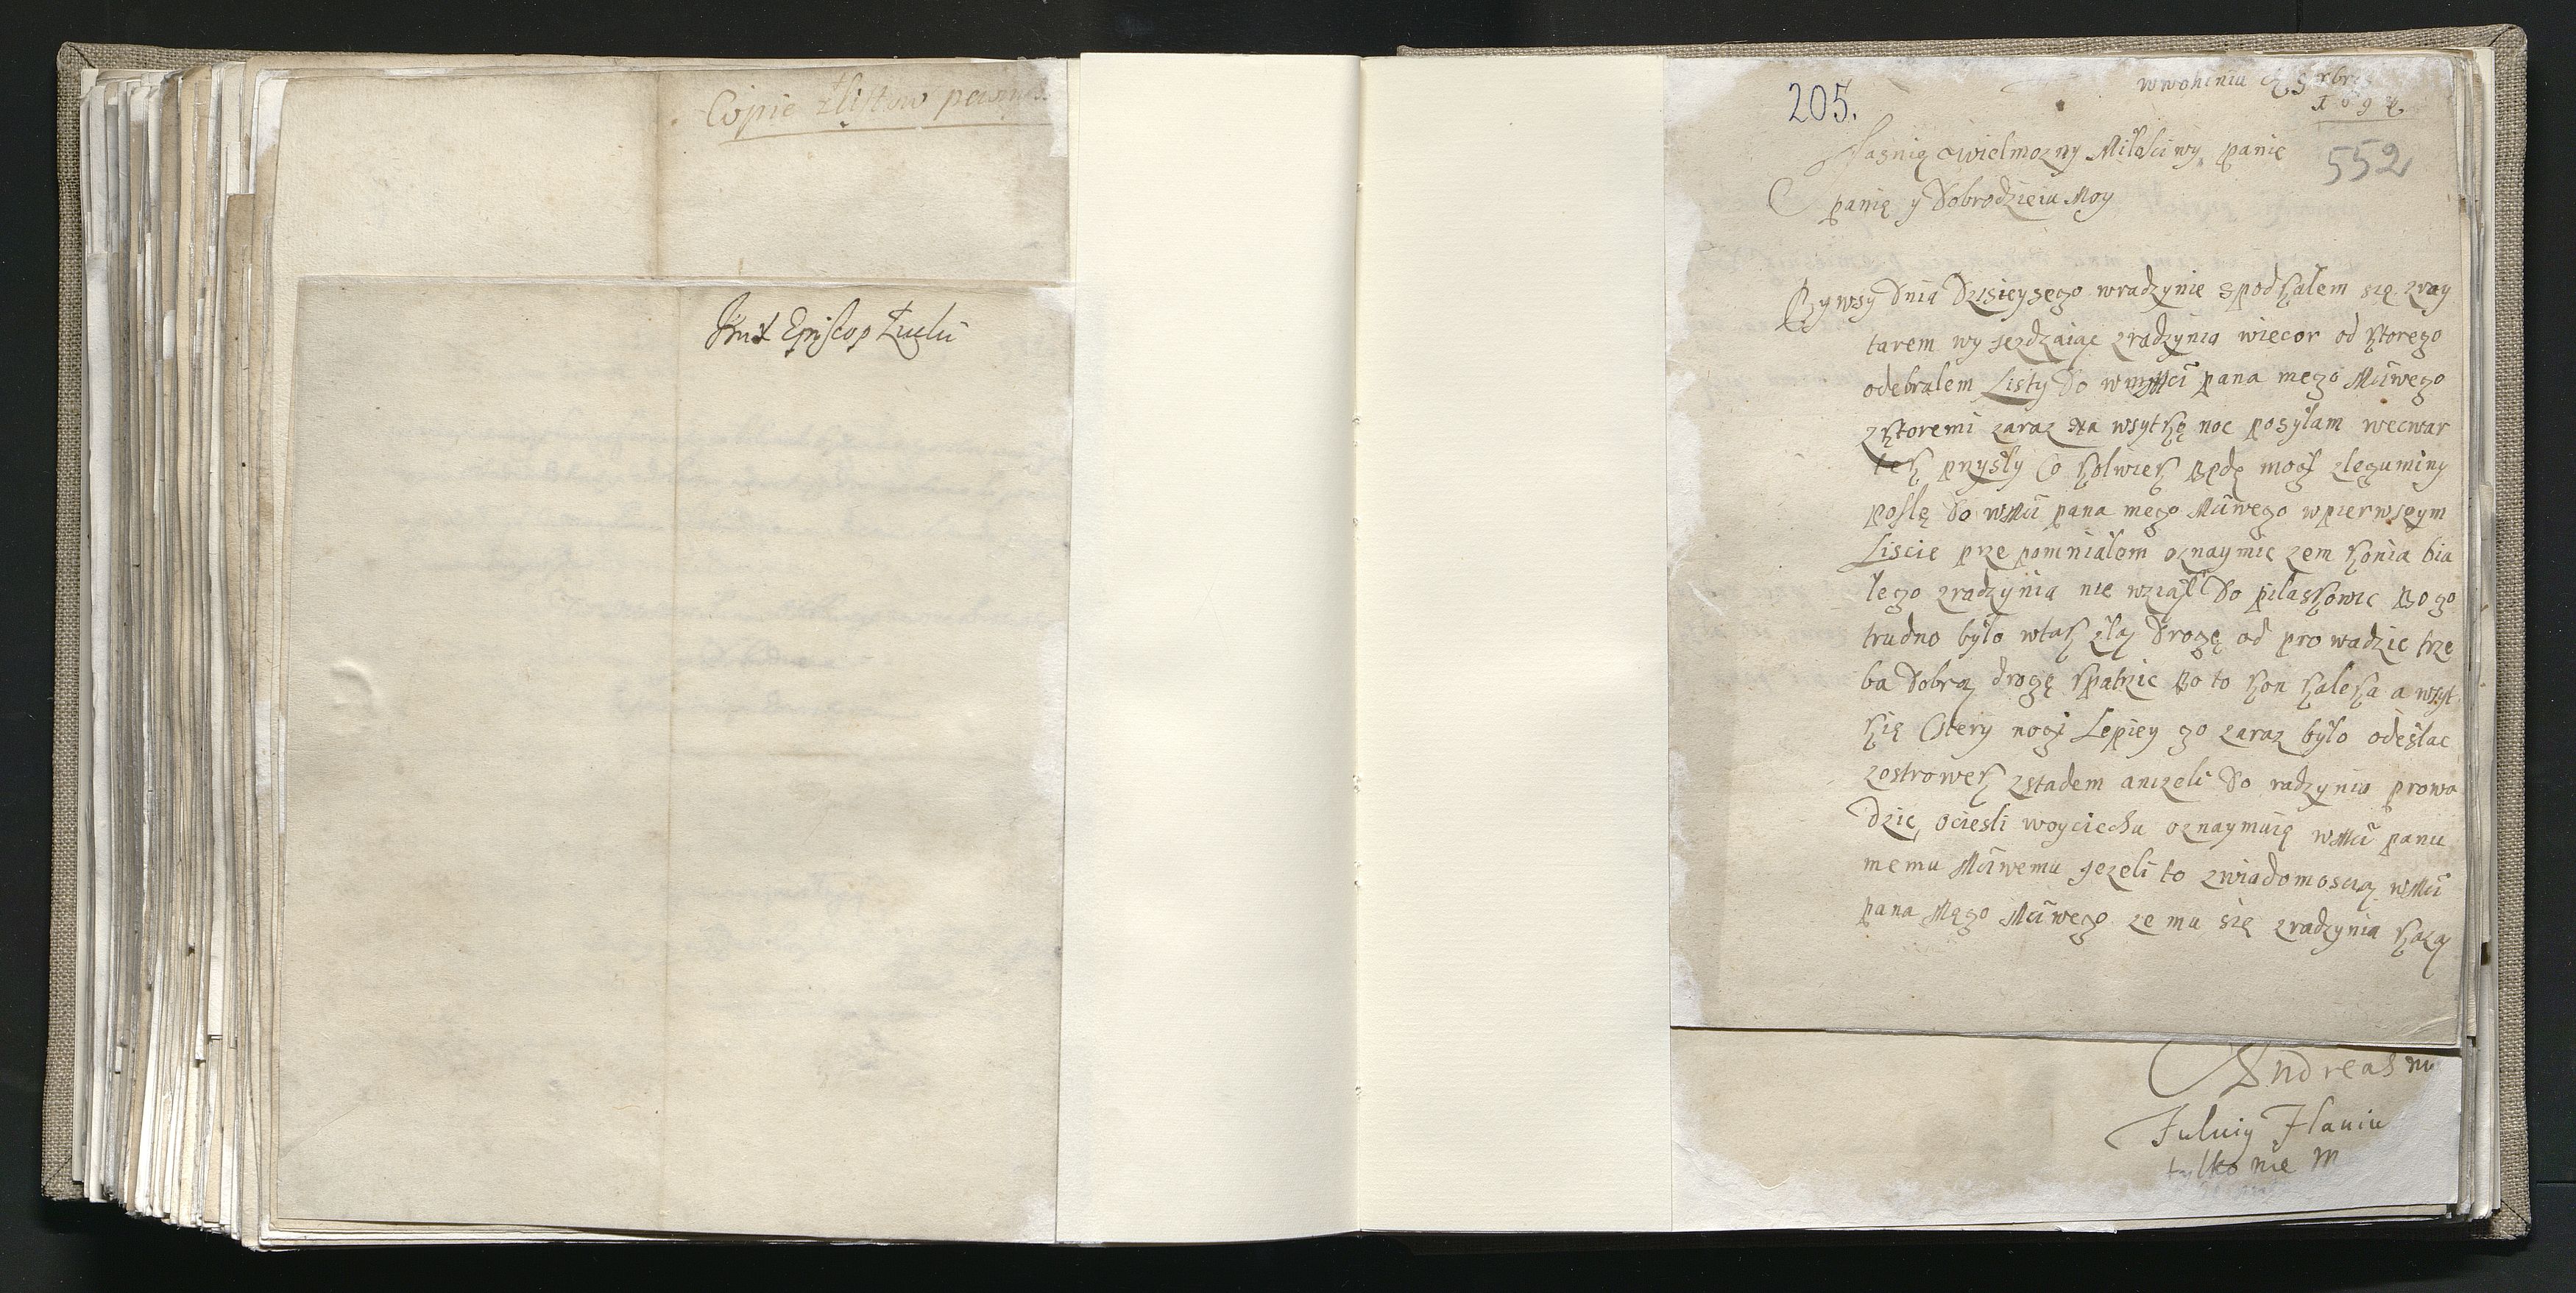 Copie z listow pewnych
Episcop Lucku
205.
w wohiniu 9brĩs
1692.
552
Jasnie wielmozny Milosciwy panie
panie y Dobrodzieiu Moy
Bywsy Dnia Dzisieysego w radzynie spodkalem się z ray
tarem wy jezdzaiąc z radzynia wiecor od ktorego
odebralem Listy Do wmMci pana mego Mciwego
z ktoremi zaraz na wsytkę noc posylam we cwar
tek przysly Co kolwiek Będę mogł z leguminy
poslę Do wMci pana mego Mciwego w pierwszym
Liscie prze pomnialem oznaymic zem konia bia
lego z radzynia nie wziął Do pilaskowic Bo go
trudno bylo w tak zlą Drogę od pro wadzic trze
ba Dobrą drogę upatrzic Bo to kon kaleka a wszyt
kie Ctery nogi Lepiey go zaraz bylo odeslac
z ostrowek z stadem anizeli Do radzynia prowa
Dzic, o ciesli woyciechu oznaymuię wMci panu
memu Mciwemu jezeli to z wiadomoscią wMci
pana Mego Mciwego ze mu się z radzynia kazą
Andreas
tylko nie M